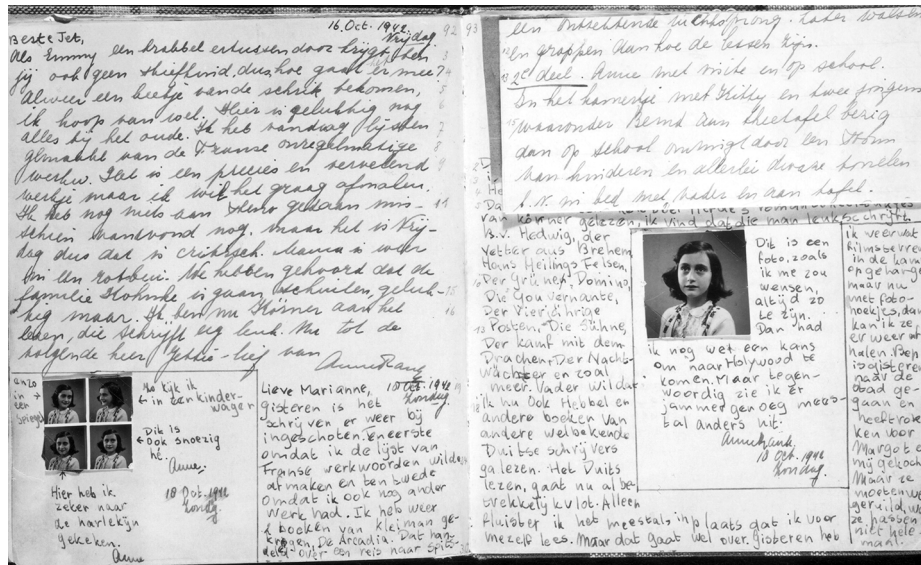 16 Oct. 1942
Vrijdag
92
93
Beste Jet,
Als Emmy een krabbel ertussen door krijgt, ben
jij ook geen stiefkind, dus hoe gaat er mee?
Alweer een beetje van de schrik bekomen,
ik hoop van wel. Hier is gelukkig nog
alles bij het oude. Ik heb vandaag lijsten
gemaakt van de Franse onregelmatige
werkw. Het is een precies en vervelend
werkje maar ik wil het graag afmaken.
Ik heb nog niets aan steno gedaan mis-
schien vanavond nog. maar het is Vrij-
dag dus dat is critisch. Mama is weer
in een rotbui. We hebben gehoord dat de
familie is gaan schuilen, geluk-
kig maar. Ik ben nu Körner aan het
lezen, die schrijft erg leuk. Nu tot de
volgende keer Jettie-lief van
Anne Frank
anzo
in een
Spiegel
Nu kijk ik
in een kinder-
wagen
Dit is
Ook snoezig
hè.
Anne.
18 Oct. 1942
Zondag
Hier heb ik
zeker naar
de harlekijn
gekeken.
Anne
18 Oct. 1942
Zondag
Lieve Marianne,
Gisteren is het
schrijven er weer bij
ingeschoten. Teneerste
omdat ik de lijst van
Franse werkwoorden wilde
afmaken en ten twede
omdat ik ook nog ander
werk had. Ik heb weer
2 boeken van Kleiman ge-
kregen, De Arcadia. Dat han-
deld over een reis naar Spits-
een ontzettende luchtsprong. Later
en grappen dan hoe de lessen zijn.
2e deel. Anne met visite en op school.
In het kamertje met Kitty en twee jongens
waaronder Bernd aan theetafel bezig
dan op school omringt door een stroom
van kinderen en allerlei dwaze tonelen
b.v. in bed met vader en aan tafel.
van körner gelezen, ik vind dat die man leuk schrijft.
B.v. Hedwig, der
Vetter aus Brehem
Hans Heilings Felsen,
Der Grünen Domino,
Die Gouvernante,
Der Vierjährige
Posten, Die Sühne,
Der Kamf mit dem
Drachen, Der Nacht-
wächter en zoal
meer. Vader wil dat
ik nu Ook Hebbel en
andere boeken van
andere welbekende
Duitse schrijvers
ga lezen. Het Duits
lezen, gaat nu al be-
trekkelijk vlot. Alleen
fluister ik het meestals in plaats dat ik voor
mezelf lees. Maar dat gaat wel over. gisteren heb
Dit is een
foto, zoals
ik me zou
wensen,
altijd zo
te zijn.
Dan had
ik nog wel een kans
om naar Holywood te
komen. Maar tegen-
woordig zie ik er
jammer genoeg mees-
tal anders uit.
Anne Frank.
18 Oct. 1942
Zondag
ik weer wat
filmsterren
in de kam
opgehang
maar nu
met foto-
hoekjes, dan
kan ik ze
er weer af
halen. Bep
is gisteren
naar de
stad ge-
gaan en
heeft rok-
ken voor
Margot en
mij gekocht
Maar ze
moeten w
geruild, wa
ze passen
niet hele-
maal.